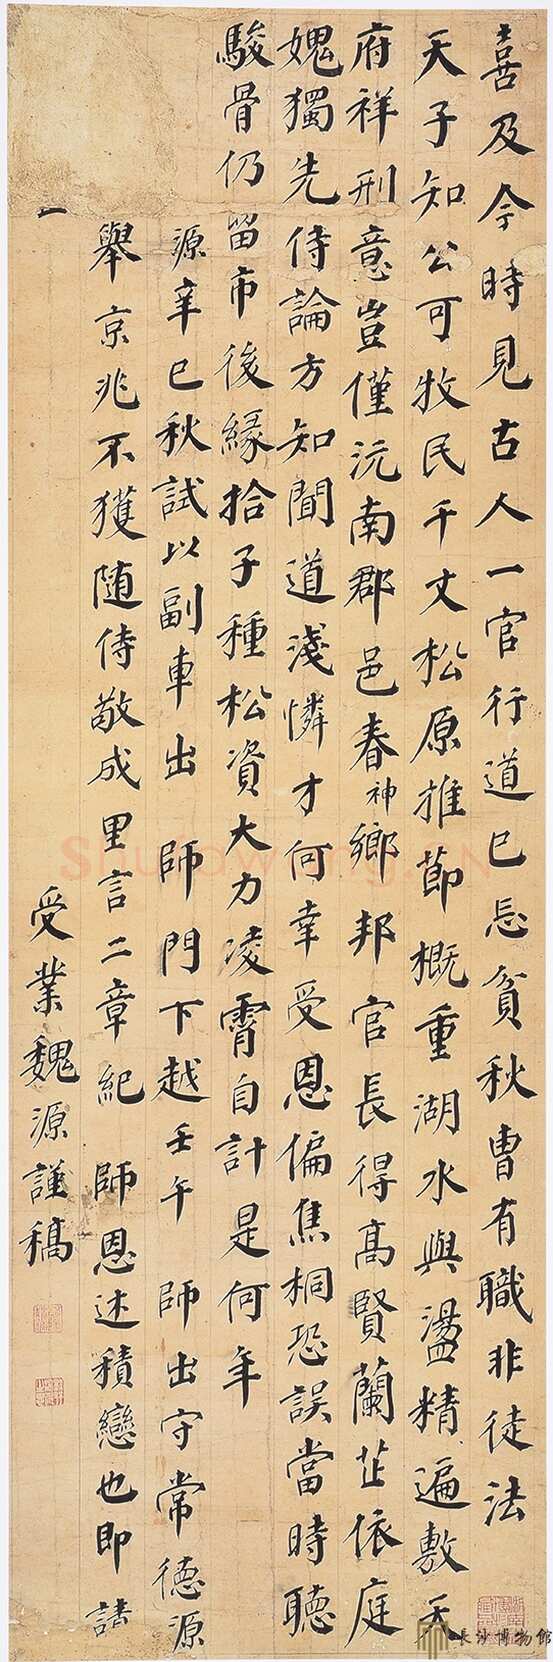 喜及今時見古人一官行道已忘貧秋曹有職非徒法
天子知公可牧民千丈松原推節概重湖水與盪精遍敷天
府祥刑意豈僅沅南郡邑春神鄉邦官長得高賢蘭芷依庭
媿獨先侍論方知聞道淺憐才何幸受恩偏焦桐恐誤當時聽
駿骨仍留市後緣拾子種松資大力凌霄自計是何年
源辛巳秋試以副車出 師門下越壬午 師出守常德源
一
舉京兆不獲隨侍敬成里言二章紀 師恩述積戀也即請
受業魏源謹稿
長沙博物館
Shufawang.CN